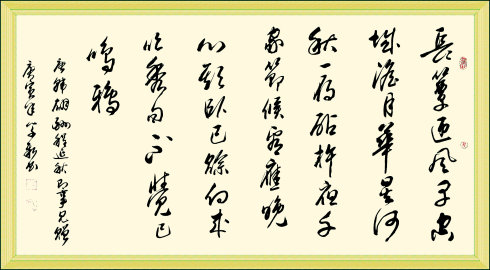 長簟迎风早空
城澹月華星河
秋一雁砧杵夜千
家節候看應晚
心期卧已賒向来
吟秀句不覺已
鳴鴉
唐韩翃酬程延秋即事见赠
庚寅年书